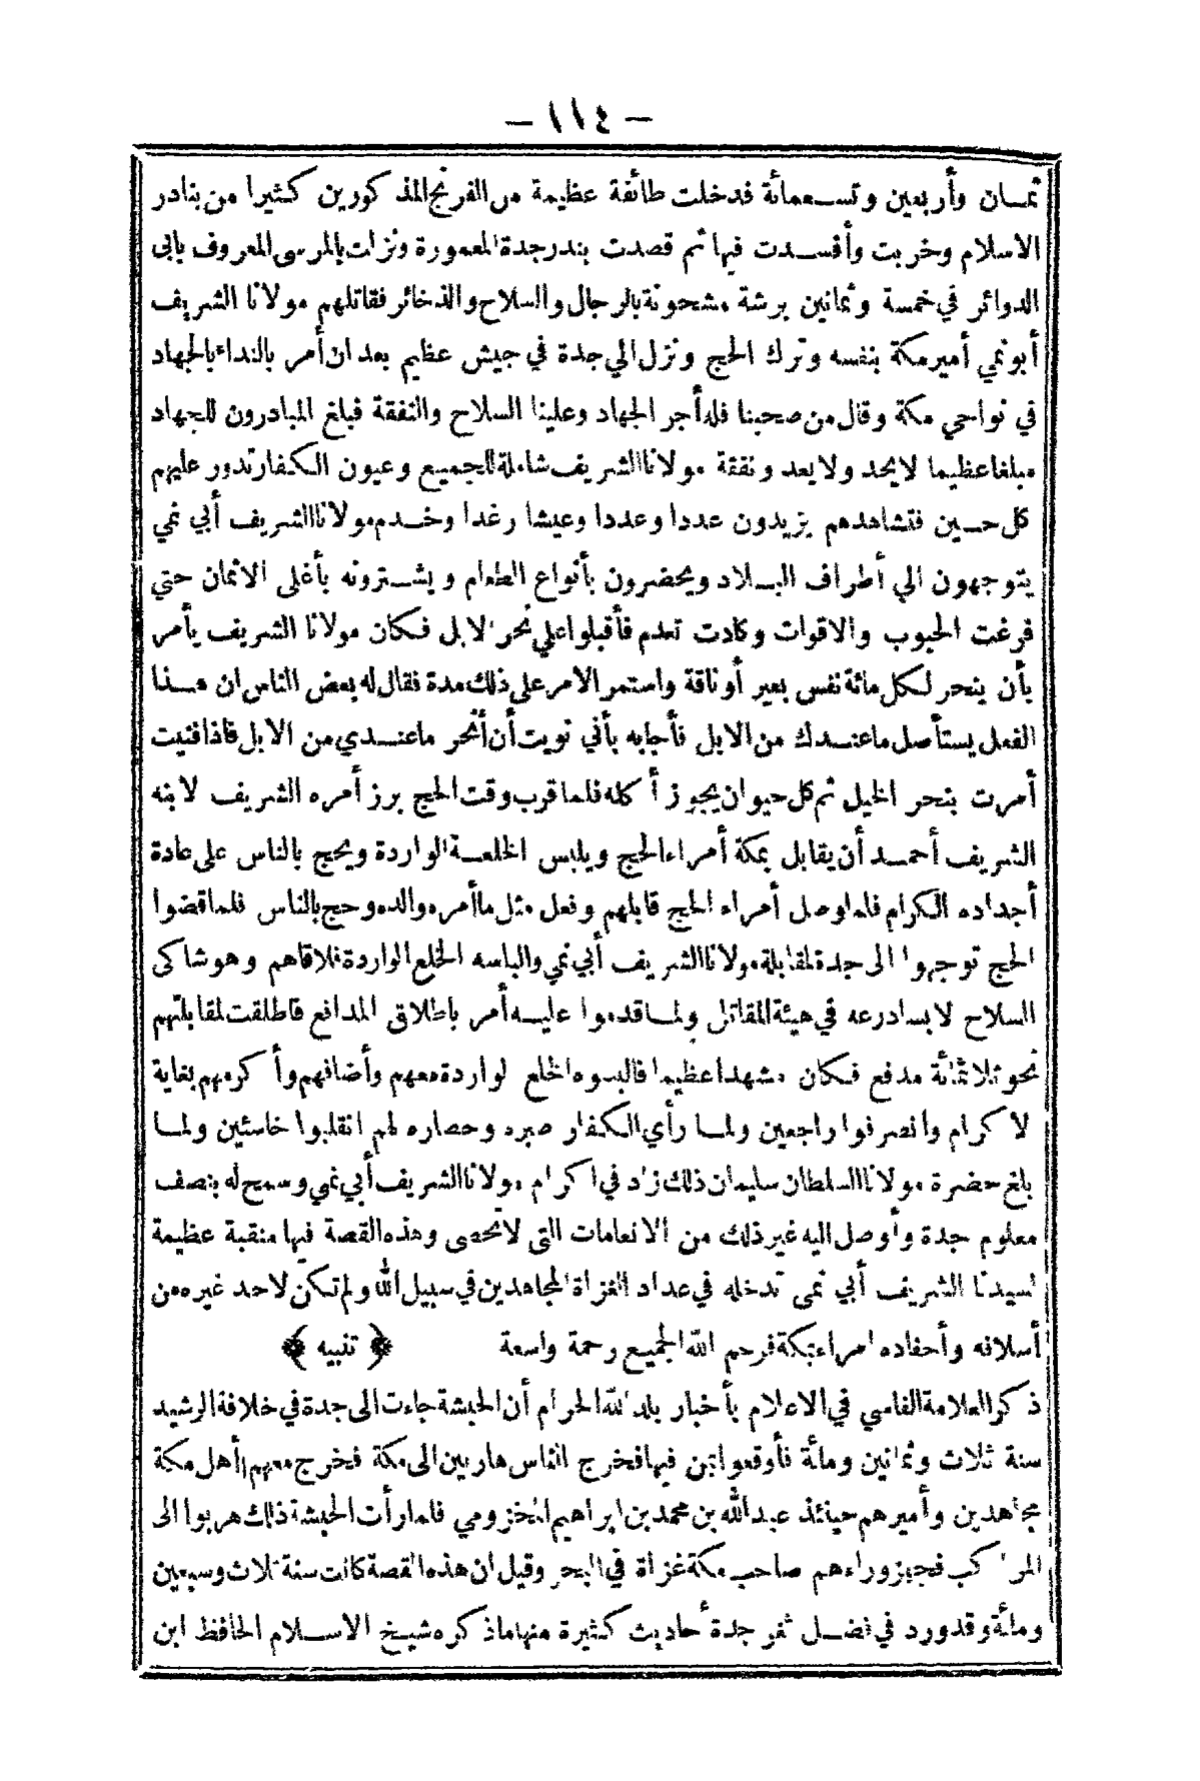 – ١١٤ –
ثمـان وأربعين وتسـعمائة فدخلت طائفة عظيمة من الفرنج المذكورين كثيرا من بنادر
الاسلام وخربت وأفسـدت فيها ثم قصدت بندر جدة المعمورة ونزلت بالمرسى المعروف بابى
الدوائر في خمسة وثمانين برشة مشحونة بالرجال والسلاح والذخائر فقاتلهم مولانا الشريف
أبو نمي أمير مكة بنفسه وترك الحج ونزل الي جدة في جيش عظيم بعد ان أمر بالنداء بالجهاد
في نواحي مكة وقال من صحبنا فله أجر الجهاد وعلينا السلاح والنفقة فبلغ المبادرون للجهاد
مبلغا عظيما لا يحد ولا يعد ونفقة مولانا الشريف شاملة للجميع وعيون الكفار تدور عليهم
كل حـين فتشاهدهم يزيدون عددا وعددا وعيشا رغدا وخـدم مولانا الشريف أبي نمي
يتوجهون الي أطراف البـلاد ويحضرون بأنواع الطعام ويشـترونه بأغلى الاثمان حتي
فرغت الحبوب والاقوات وكادت تعدم فأقبلوا علي نحر الابل فكان مولانا الشريف يأمر
بأن ينحر لكل مائة نفس بعير أو ناقة واستمر الامر على ذلك مدة فقال له بعض الناس ان هـذا
الفعل يستأصل ما عنـدك من الابل فأجابه بأني نويت أن أنحر ما عنـدي من الابل فاذا فنيت
أمرت بنحر الخيل ثم كل حيوان يجوز أكله فلما قرب وقت الحج برز أمره الشريف لابنه
الشريف أحمـد أن يقابل بمكة أمراء الحج ويلبس الخلعـة الواردة ويحج بالناس على عادة
أجداده الكرام فلما وصل أمراء الحج قابلهم وفعل مثل ما أمره والده وحج بالناس فلما قضوا
الحج توجهوا الى جدة لمقابلة مولانا الشريف أبي نمي والباسه الخلع الواردة فلاقاهم وهو شاكى
السلاح لابسا درعه في هيئة المقاتل ولمـا قدموا عليـه أمر باطلاق المدافع فاطلقت لمقابلتهم
نحو ثلاثمائة مدفع فكان مشهدا عظيما فالبسوه الخلع لواردة معهم وأضافهم وأكرمهم بغاية
لاكرام وانصرفوا راجعين ولمـا رأي الكفار صبره وحصاره لهم انقلبوا خاسئين ولمـا
بلغ حضرة مولانا السلطان سليمان ذلك زاد في اكرام مولانا الشريف أبي نمي وسمح له بنصف
معلوم جدة وأوصل اليه غير ذلك من الانعامات التى لا تحصى وهذه القصة فيها منقبة عظيمة
لسيدنا الشريف أبي نمى تدخله في عداد الغزاة المجاهدين في سبيل الله ولم تكن لاحد غيره من
أسلافه وأحفاده امراء مكة فرحم الله الجميع رحمة واسعة ﴿ تنبيه ﴾
ذكر العلامة الفاسي في الاعلام بأخبار بلد الله الحرام أن الحبشة جاءت الى جدة في خلافة الرشيد
سنة ثلاث وثمانين ومائة فأوقعوا بمن فيها فخرج الناس هاربين الى مكة فخرج معهم أهل مكة
مجاهدين وأميرهم حينئذ عبد الله بن محمد بن ابراهيم المخزومي فلما رأت الحبشة ذلك هربوا الى
المراكب فجهز وراءهم صاحب مكة غزاة في البحر وقيل ان هذه القصة كانت سنة ثلاث وسبعين
ومائة وقد ورد في فضـل ثغر جدة أحاديث كثيرة منها ما ذكره شيـخ الاسـلام الحافظ ابن